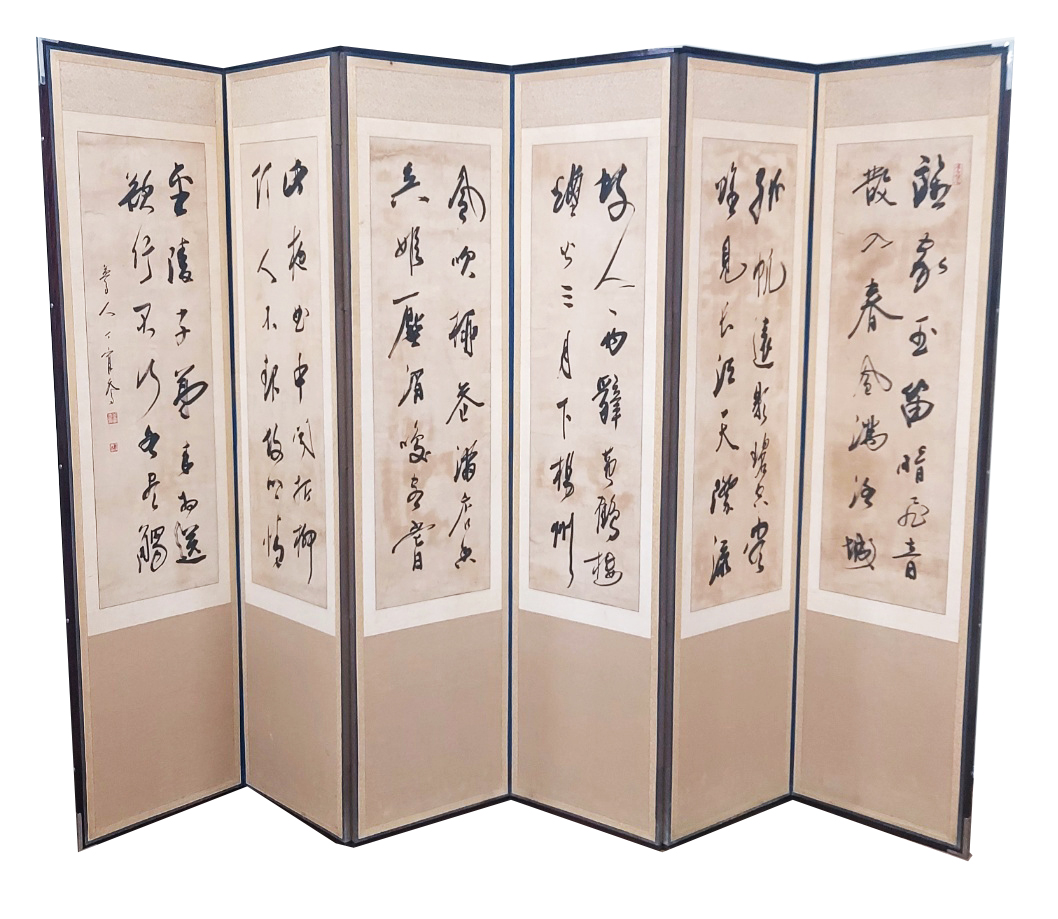 誰家玉笛暗飛音
散入春風滿洛城
孤帆遠影碧空盡
唯見長江天際流
故人西辭黃鶴樓
煙花三月下楊州
風吹柳花滿店香
吳姬壓酒喚客嘗
此夜曲中聞折柳
何人不起故園情
金陵子弟來相送
欲行不行各盡觴
魯人丁